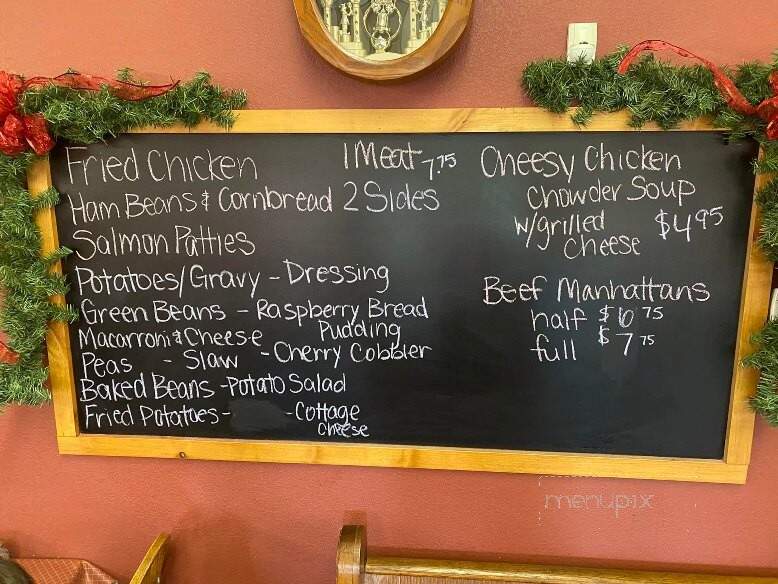 Fried Chicken 1 Meat 7.75
Ham Beans & Cornbread 2 Sides
Salmon Patties
Potatoes/Gravy - Dressing
Green Beans - Raspberry Bread
Pudding
Macarroni & Cheese
Peas - Slaw - Cherry Cobbler
Baked Beans - Potato Salad
Fried Potatoes - - Cottage
Cheese
Cheesy Chicken
Chowder Soup
w/grilled $4.95
Cheese
Beef Manhattans
half $6 75
full $7 75
menupix